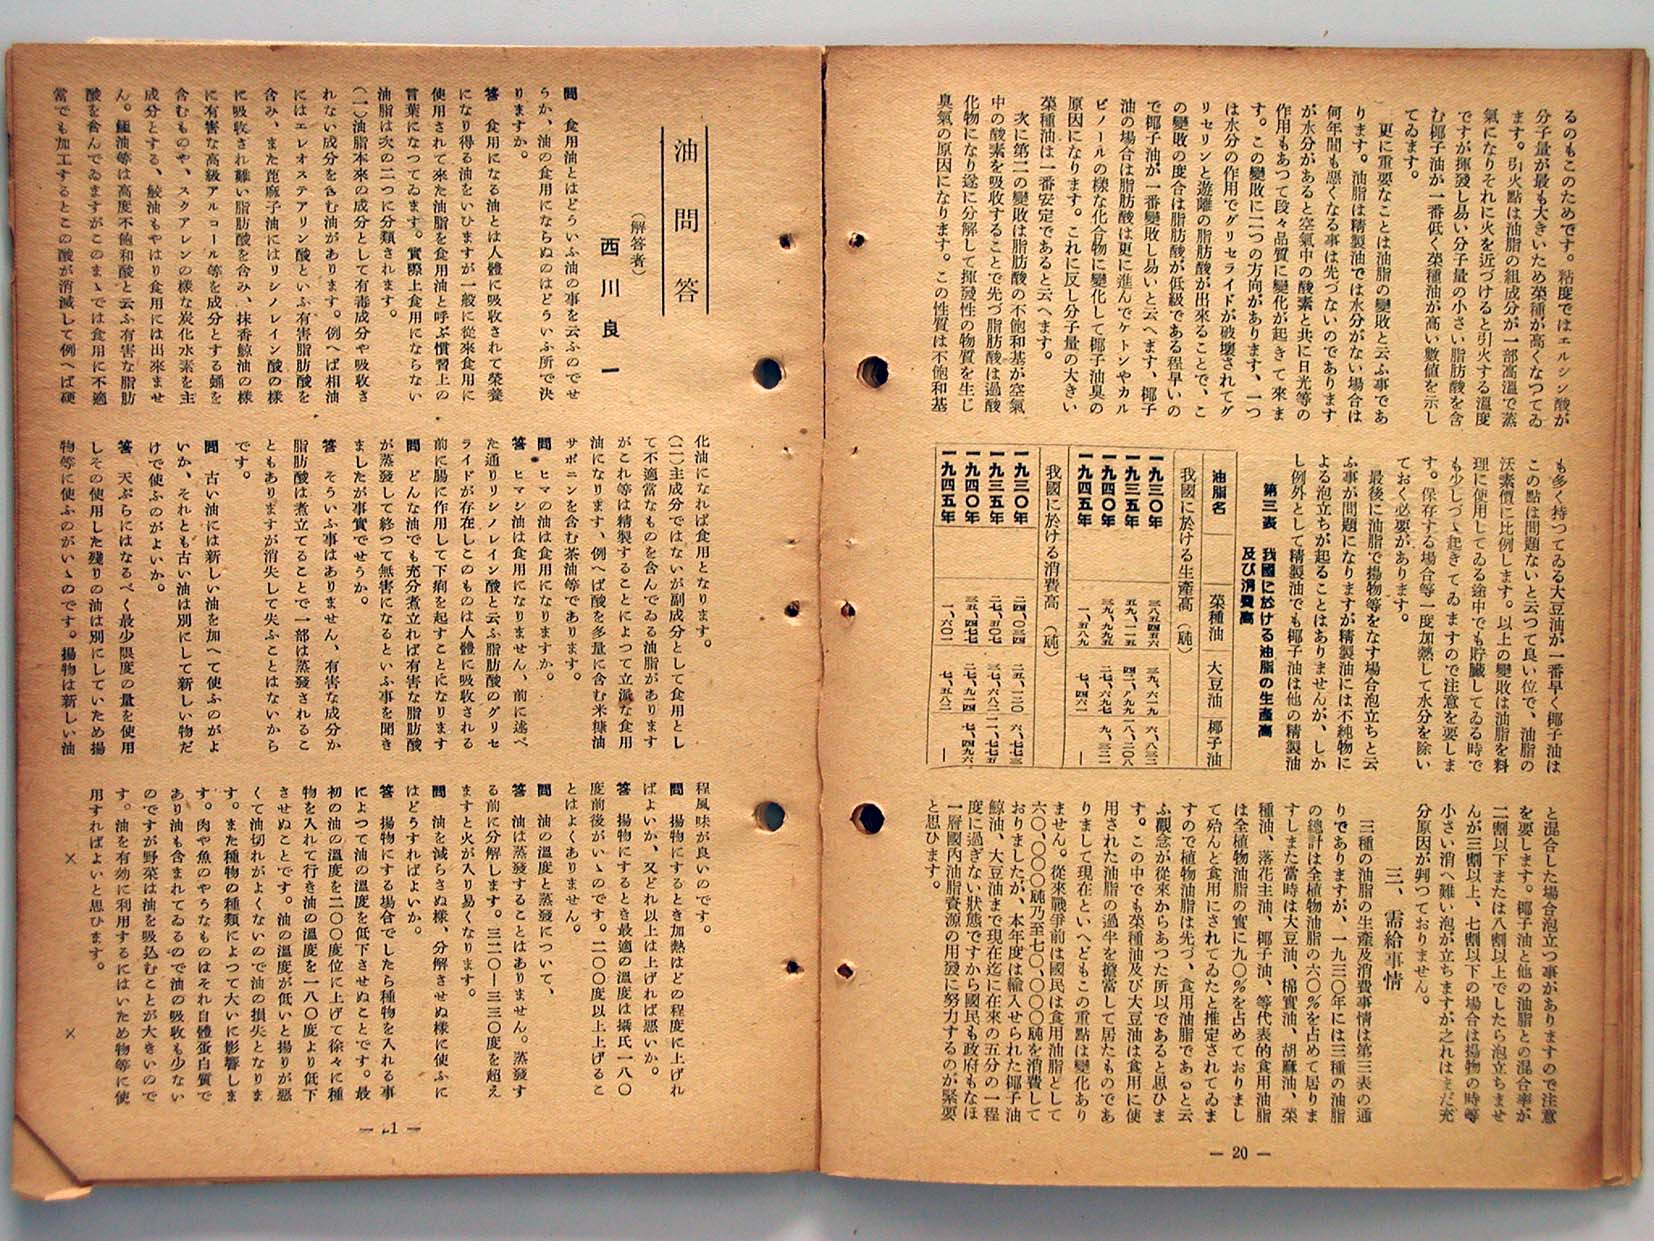 るのもこのためです。粘度ではエルシン酸が
分子量が最も大きいため菜種が高くなつてゐ
ます。引火點は油脂の組成分が一部高溫で蒸
氣になりそれに火を近づけると引火する溫度
ですが揮發し易い分子量の小さい脂肪酸を含
む椰子油が一番低く菜種油が高い數値を示し
てゐます。
更に重要なことは油脂の變敗と云ふ事であ
ります。油脂は精製油では水分がない場合は
何年間も悪くなる事は先づないのであります
が水分があると空氣中の酸素と共に日光等の
作用もあつて段々品質に變化が起きて來ま
す。この變敗に二つの方向があります、一つ
は水分の作用でグリセライドが破壊されてグ
リセリンと遊離の脂肪酸が出來ることで、こ
の變敗の度合は脂肪酸が低級である程早いの
で椰子油が一番變敗し易いと云へます、椰子
油の場合は脂肪酸は更に進んでケトンやカル
ビノールの樣な化合物に變化して椰子油臭の
原因になります。これに反し分子量の大きい
菜種油は一番安定であると云へます。
次に第二の變敗は脂肪酸の不飽和基が空氣
中の酸素を吸收することで先づ脂肪酸は過酸
化物になり遂に分解して揮發性の物質を生じ
臭氣の原因になります。この性質は不飽和基
も多く持つてゐる大豆油が一番早く椰子油は
この點は問題ないと云つて良い位で、油脂の
沃素價に比例します。以上の變敗は油脂を料
理に使用してゐる途中でも貯藏してゐる時で
も少しづゝ起きてゐますので注意を要しま
す。保存する場合等一度加熱して水分を除い
ておく必要があります。
最後に油脂で揚物等をなす場合泡立ちと云
ふ事が問題になりますが精製油には不純物に
よる泡立ちが起ることはありませんが、しか
し例外として精製油でも椰子油は他の精製油
第三表 我國に於ける油脂の生產高
及び消費高
油脂名 菜種油 大豆油 椰子油
我國に於ける生產高(瓲)
一九三〇年 三八、五四五 三九、六一九 六、八三二
一九三五年 五九、一一五
一九四〇年 三九、九九五 二七、六九七 九、三二一
一九四五年 一、五八九 七、四六二 —
我國に於ける消費高(瓲)
一九三〇年 二四、〇三四 二五、一二〇 六、七七三
一九三五年 二七、五〇七
一九四〇年 三五、四七七 二七、九一四 七、四九六
一九四五年 一、六〇一 七、五八二 —
と混合した場合泡立つ事がありますので注意
を要します。椰子油と他の油脂との混合率が
二割以下または八割以上でしたら泡立ちませ
んが三割以上、七割以下の場合は揚物の時等
小さい消へ難い泡が立ちますが之れはまだ充
分原因が判つておりません。
三、需給事情
三種の油脂の生產及消費事情は第三表の通
りでありますが、一九三〇年には三種の油脂
の總計は全植物油脂の六〇%を占めて居りま
すしまた當時は大豆油、棉實油、胡麻油、菜
種油、落花生油、椰子油、等代表的食用油脂
は全植物油脂の實に九〇%を占めておりまし
て殆んと食用にされてゐたと推定されてゐま
すので植物油脂は先づ、食用油脂であると云
ふ觀念が從來からあつた所以であると思ひま
す。この中でも菜種油及び大豆油は食用に使
用された油脂の過半を擔當して居たものであ
りまして現在といへどもこの重點は變化あり
ません。從來戰爭前は國民は食用油脂として
六〇、〇〇〇瓲乃至七〇、〇〇〇瓲を消費して
おりましたが、本年度は輸入せられた椰子油
鯨油、大豆油まで現在迄に在來の五分の一程
度に過ぎない狀態ですから國民も政府もなほ
一層國內油脂資源の用發に努力するのが緊要
と思ひます。
— 20 —
油問答
(解答者)
西川良一
問 食用油とはどういふ油の事を云ふのでせ
うか、油の食用にならぬのはどういふ所で決
りますか。
答 食用になる油とは人體に吸收されて榮養
になり得る油をいひますが一般に從來食用に
使用されて來た油脂を食用油と呼ぶ慣習上の
言葉になつてゐます。實際上食用にならない
油脂は次の二つに分類されます。
(一)油脂本來の成分として有毒成分や吸收さ
れない成分を含む油があります。例へば桐油
にはエレオステアリン酸といふ有害脂肪酸を
含み、また蓖麻子油にはリシノレイン酸の樣
に吸收され難い脂肪酸を含み、抹香鯨油の樣
に有害な高級アルコール等を成分とする蛹を
含むものや、スクアレンの樣な炭化水素を主
成分とする、鮫油もやはり食用には出來ませ
ん。鰮油等は高度不飽和酸と云ふ有害な脂肪
酸を含んでゐますがこのまゝでは食用に不適
當でも加工するとこの酸が消滅して例へば硬
化油になれば食用となります。
(二)主成分ではないが副成分として食用とし
て不適當なものを含んでゐる油脂があります
がこれ等は精製することによつて立派な食用
油になります、例へば酸を多量に含む米糠油
サポニンを含む茶油等であります。
問 ヒマの油は食用になりますか。
答 ヒマシ油は食用になりません、前に述べ
た通りリシノレイン酸と云ふ脂肪酸のグリセ
ライドが存在しこのものは人體に吸收される
前に腸に作用して下痢を起すことになります
問 どんな油でも充分煮立れば有害な脂肪酸
が蒸發して終つて無害になるといふ事を聞き
ましたが事實でせうか。
答 そういふ事はありません、有害な成分か
脂肪酸は煮立てることで一部は蒸發されるこ
ともありますが消失して失ふことはないから
です。
問 古い油には新しい油を加へて使ふのがよ
いか、それとも古い油は別にして新しい物だ
けで使ふのがよいか。
答 天ぷらにはなるべく最少限度の量を使用
しその使用した殘りの油は別にしていため揚
物等に使ふのがいゝのです。揚物は新しい油
程風味が良いのです。
問 揚物にするとき加熱はどの程度に上げれ
ばよいか、又どれ以上は上げれば悪いか。
答 揚物にするとき最適の溫度は攝氏一八〇
度前後がいゝのです。二〇〇度以上上げるこ
とはよくありません。
問 油の溫度と蒸發について、
答 油は蒸發することはありません。蒸發す
る前に分解します。三二〇—三三〇度を超え
ますと火が入り易くなります。
問 油を減らさぬ樣、分解させぬ樣に使ふに
はどうすればよいか。
答 揚物にする場合でしたら種物を入れる事
によつて油の溫度を低下させぬことです。最
初の油の溫度を二〇〇度位に上げて徐々に種
物を入れて行き油の溫度を一八〇度より低下
させぬことです。油の溫度が低いと揚りが悪
くて油切れがよくないので油の損失となりま
す。また種物の種類によつて大いに影響しま
す。肉や魚のやうなものはそれ自體蛋白質で
あり油も含まれてゐるので油の吸收も少ない
のですが野菜は油を吸込むことが大きいので
す。油を有効に利用するにはいため物等に使
用すればよいと思ひます。
× ×